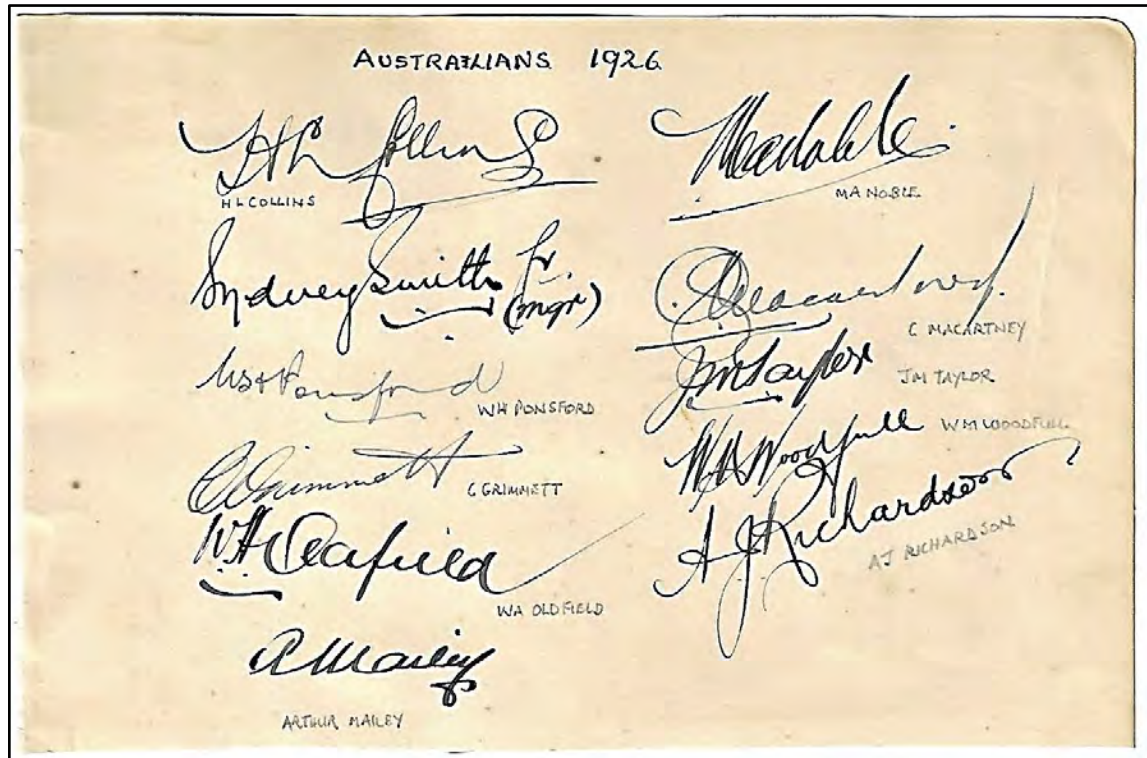 AUSTRALIANS 1926
H L Collins
H L COLLINS
Sydney Smith Jr.
(mgr)
WH Ponsford
WH PONSFORD
C Grimmett
C GRIMMETT
WA Oldfield
WA OLDFIELD
A Mailey
ARTHUR MAILEY
MA Noble
MA NOBLE
C Macartney
C MACARTNEY
JM Taylor
JM TAYLOR
W.M Woodfull
WM WOODFULL
A.J. Richardson
AJ RICHARDSON